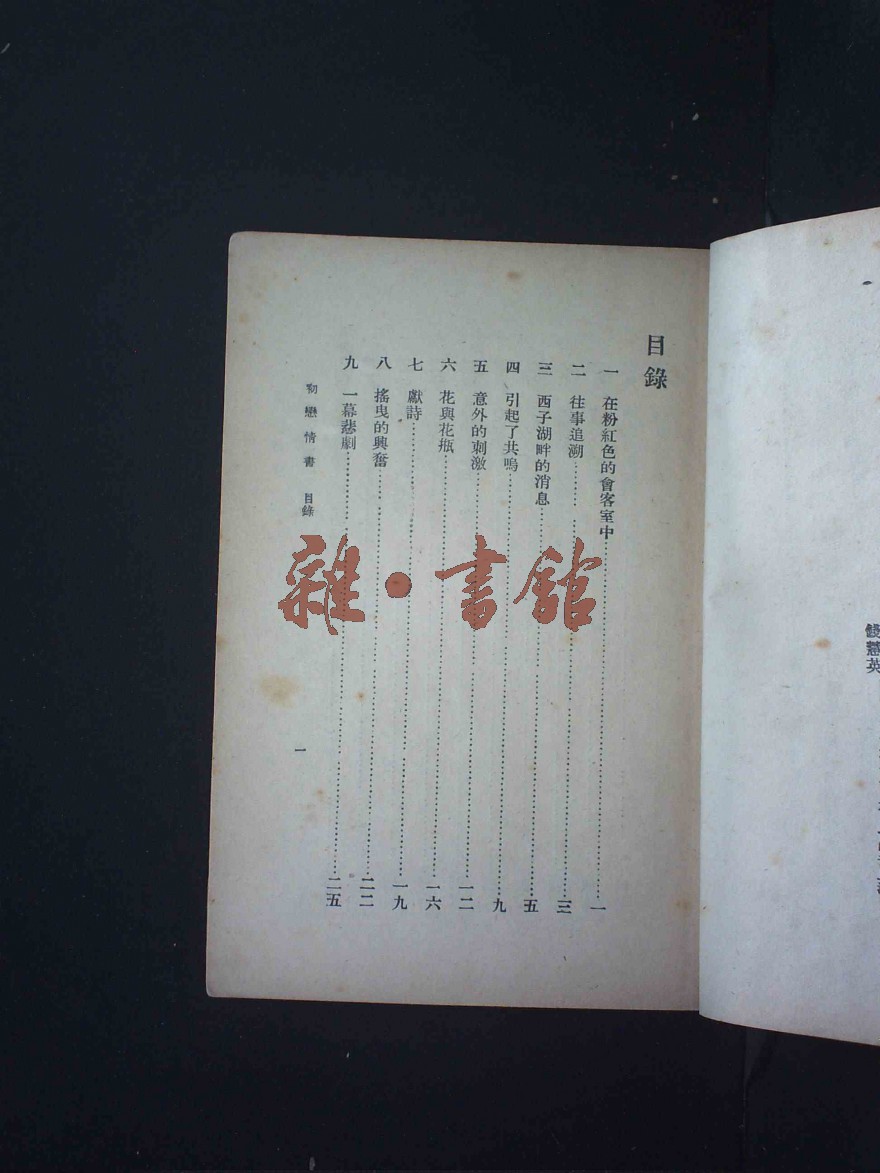 錢慧英
目錄
一 在粉紅色的會客室中 一
二 往事追溯 三
三 西子湖畔的消息 五
四 引起了共鳴 九
五 意外的刺激 一二
六 花與花瓶 一六
七 獻詩 一九
八 搖曳的興奮 二二
九 一幕悲劇 二五
初戀情書 目錄
一
雜·書館